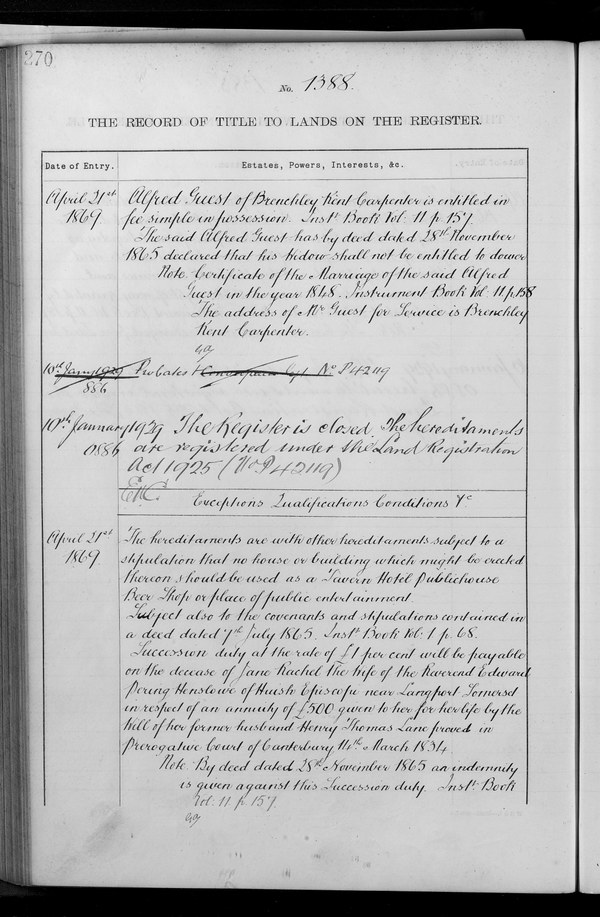 270
No. 1388.
THE RECORD OF TITLE TO LANDS ON THE REGISTER.
Date of Entry.
Estates, Powers, Interests, &c.
April 21st
1869.
Alfred Guest of Brenchley Kent Carpenter is entitled in
fee simple in possession. Inst. Book Vol. 11 p. 157.
The said Alfred Guest has by deed dated 28th November
1865 declared that his Widow shall not be entitled to dower
Note. Certificate of the Marriage of the said Alfred
Guest in the year 1848. Instrument Book Vol. 11 p 158
The address of Mr Guest for Service is Brenchley
Kent Carpenter.
10th Jany 1929
886
No P42119
10th January 1929 The Register is closed. The hereditaments
0886 are registered under the Land Registration
Act 1925 (No P42119)
Exceptions Qualifications Conditions &c
April 21st
1869.
The hereditaments are with other hereditaments subject to a
stipulation that no house or building which might be erected
thereon should be used as a Tavern Hotel Publichouse
Beer Shop or place of public entertainment.
Subject also to the covenants and stipulations contained in
a deed dated 7th July 1865. Inst. Book Vol. 1 p. 68.
Succession duty at the rate of £1 per cent will be payable
on the decease of Jane Rachel the wife of the Reverend Edward
Pering Henslowe of Huish Episcopi near Langport Somerset
in respect of an annuity of £500 given to her for her life by the
Will of her former husband Henry Thomas Lane proved in
Prerogative Court of Canterbury 14th March 1834.
Note. By deed dated 28th November 1865 an indemnity
is given against this Succession duty. Inst. Book
Vol. 11 p. 157.